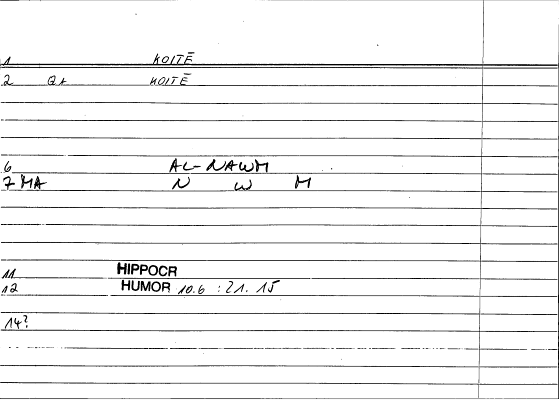 1 KOITĒ
2 QA KOITĒ
6 AL-NAWM
7 MA N W M
11 HIPPOCR
12 HUMOR 10.6 : 21. 15
14?